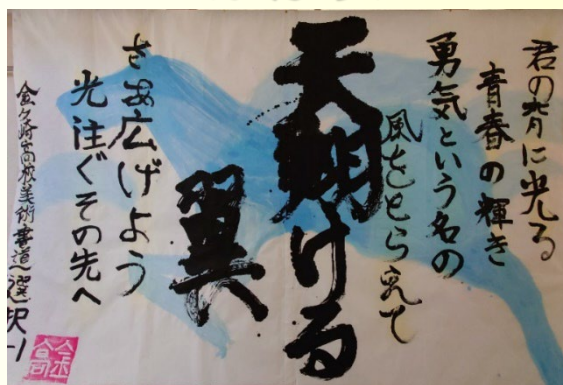 君の背に光る
青春の輝き
勇気という名の
風をとらえて
天翔ける
翼
さあ広げよう
光注ぐその先へ
金ケ崎高校美術書道選択-1
金高